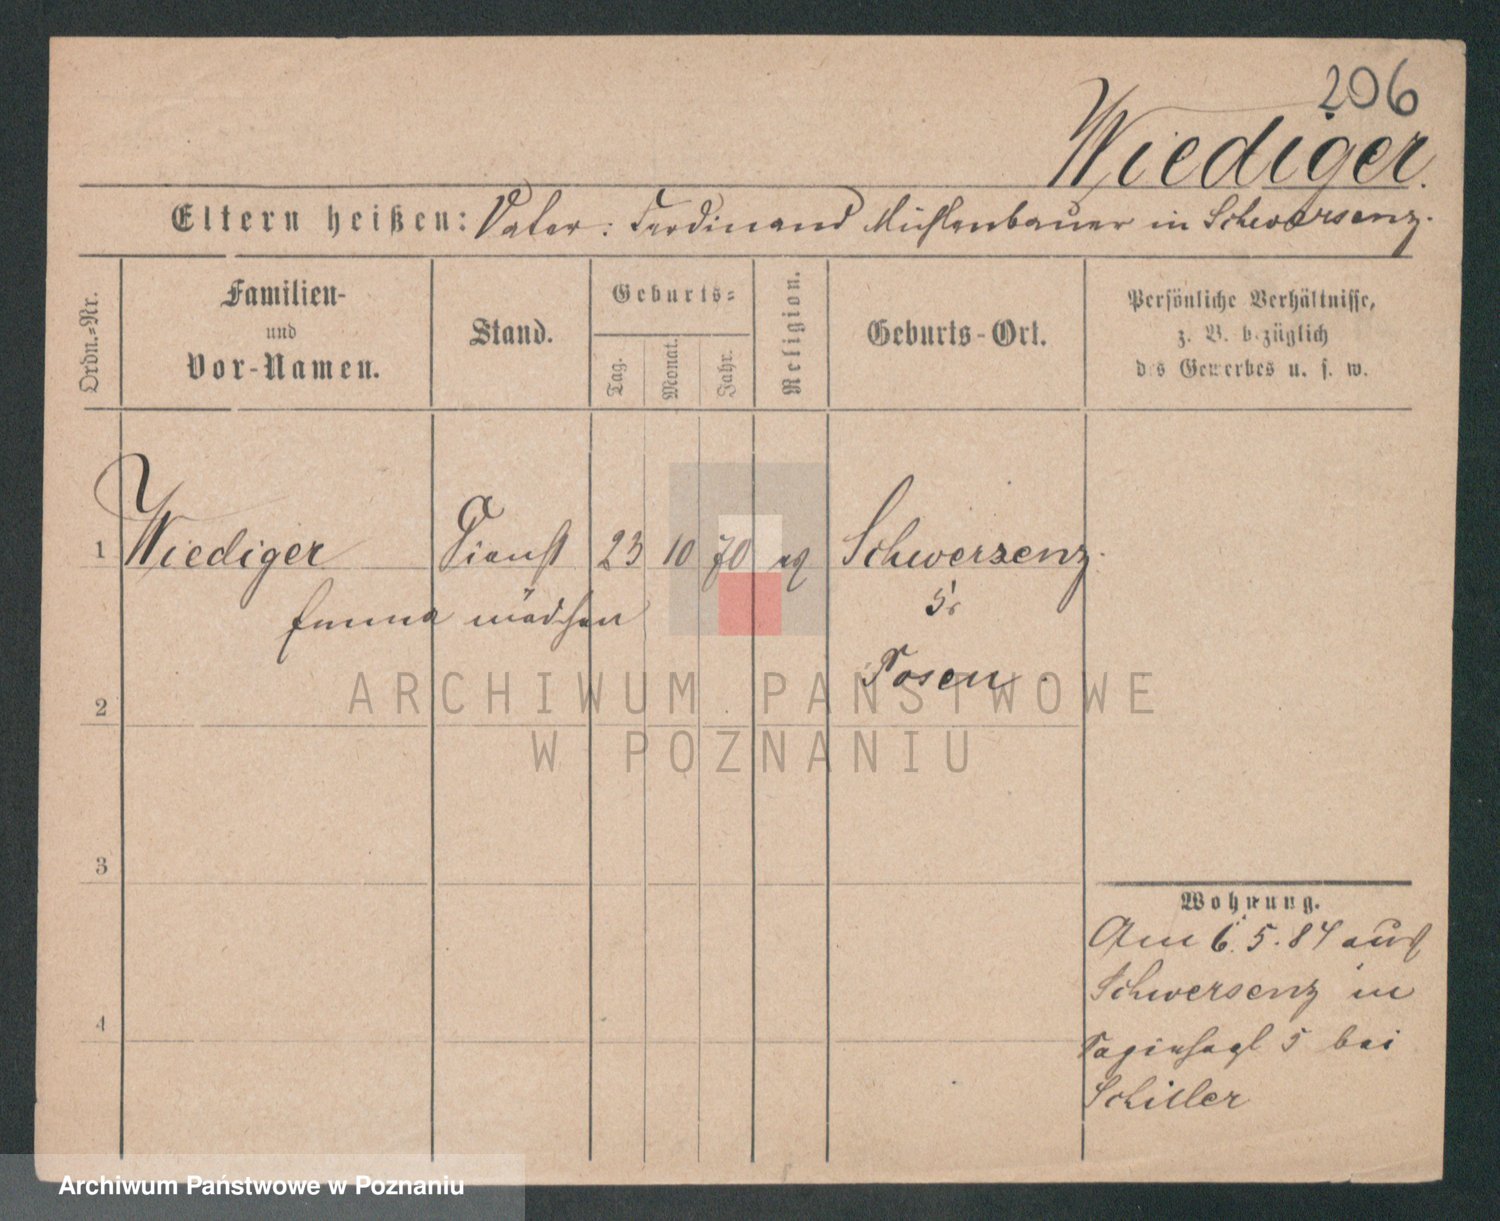 206
Wiediger.
Eltern heißen: Vater: Ferdinand Mühlenbauer in Schwersenz.
Ordn.-Nr.
Familien-
und
Vor-Namen.
Stand.
Geburts-
Tag.
Monat.
Jahr.
Religion.
Geburts-Ort.
Persönliche Verhältnisse,
z. B. bezüglich
des Gewerbes u. s. w.
1 Wiediger Dienst 23 10 70 Schwersenz.
Emma mädchen
Posen.
2
3
4
Wohnung.
Am 6.5.84 aus
Schwersenz in
5 bei
Schiller
ARCHIWUM PAŃSTWOWE
W POZNANIU
Archiwum Państwowe w Poznaniu